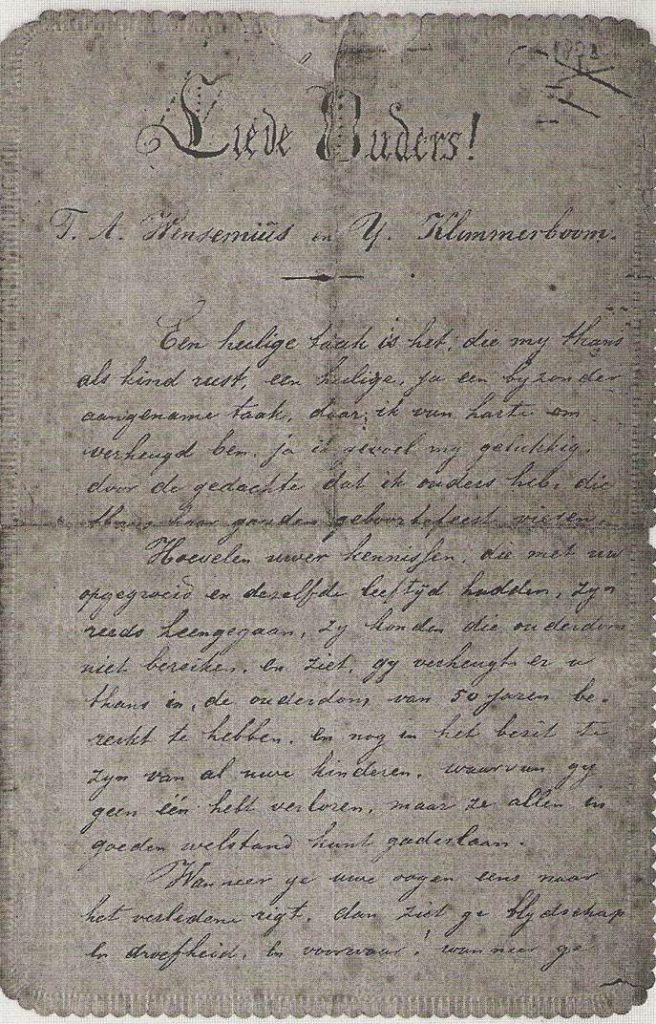 1892
Liede Ouders!
T. A. Wensemiüs en Y. Klimmerboom.
Een heilige taak is het, die my thans
als kind rust, een heilige, ja een byzonder
aangename taak, daar, ik van harte om
verheugd ben, ja ik gevoel my gelukkig,
door de gedachte dat ik ouders heb, die
thans haar gouden geboortefeest vieren.
Hoevelen uwer kennissen, die met uw
opgegroeid en dezelfde leeftyd hadden, zyn
reeds heengegaan, zy konden die ouderdom
niet bereiken, en ziet, gy verheugt er u
thans in, de ouderdom van 50 jaren be-
reikt te hebben, en nog in het bezit te
zyn van al uwe kinderen, waarvan gy
geen één hebt verloren, maar ze allen in
goeden welstand kunt gadeslaan.
Wanneer ge uwe oogen eens naar
het verledene rigt, dan ziet ge blydschap
en droefheid, en voorwaar! wanneer ge